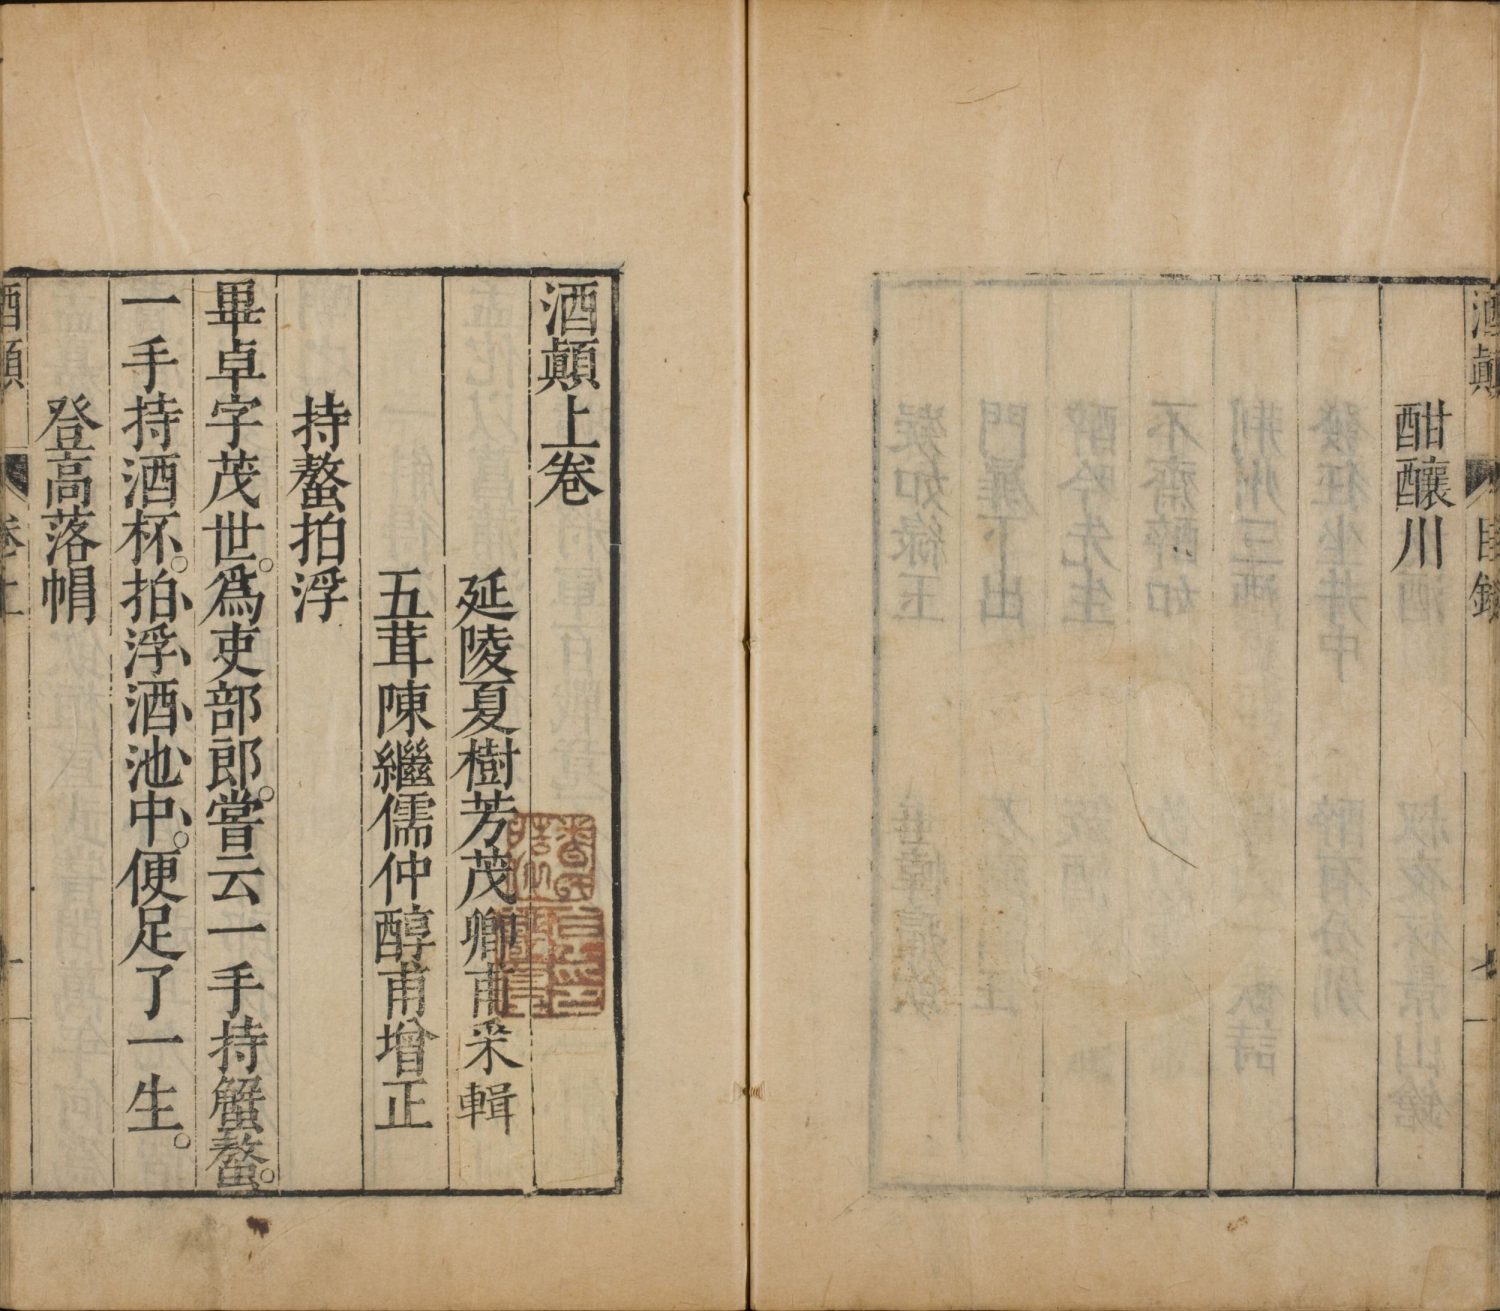 酒顛
目錄
酣釀川
酒顛上卷
延陵夏樹芳茂卿甫采輯
五茸陳繼儒仲醇甫增正
持螯拍浮
畢卓字茂世。爲吏部郎。嘗云一手持蟹螯。
一手持酒杯。拍浮酒池中。便足了一生。
登高落帽
酒顛
卷上
一